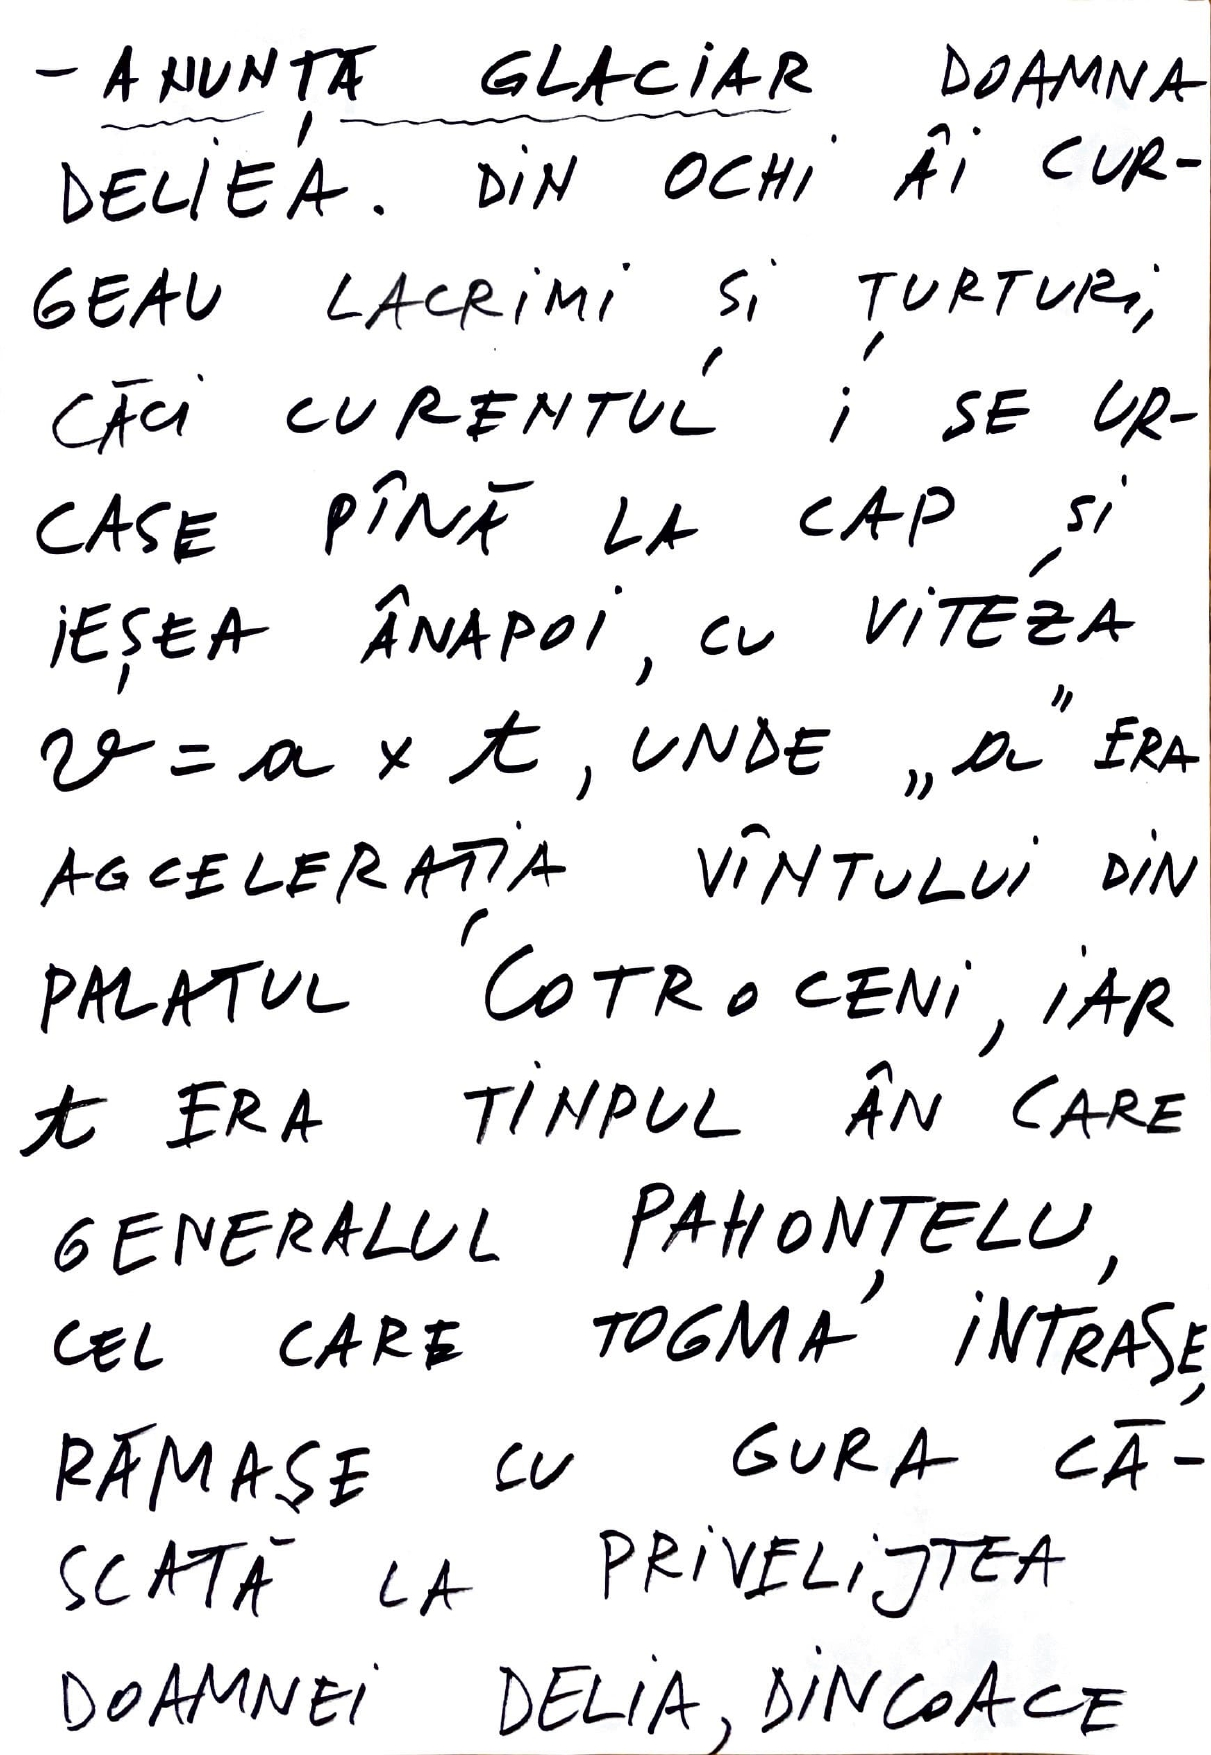 - ANUNȚĂ GLACiAR DOAMNA
DELiEA. DiN OCHi Âi CUR-
GEAU LACRiMi și ȚURTURi,
CĂCi CURENTUL i SE UR-
CASE PÎNĂ LA CAP și
iEȘEA ÂNAPOi, CU ViTEZA
v = a x t, UNDE „a" ERA
AGCELERAȚiA VÎNTULUi DiN
PALATUL COTROCENi, iAR
t ERA TiNPUL ÂN CARE
GENERALUL PAHONȚELU,
CEL CARE TOGMA iNTRASE,
RĂMAȘE CU GURA CĂ-
SCATĂ LA PRiVELiJTEA
DOAMNEi DELiA, DiNCOACE